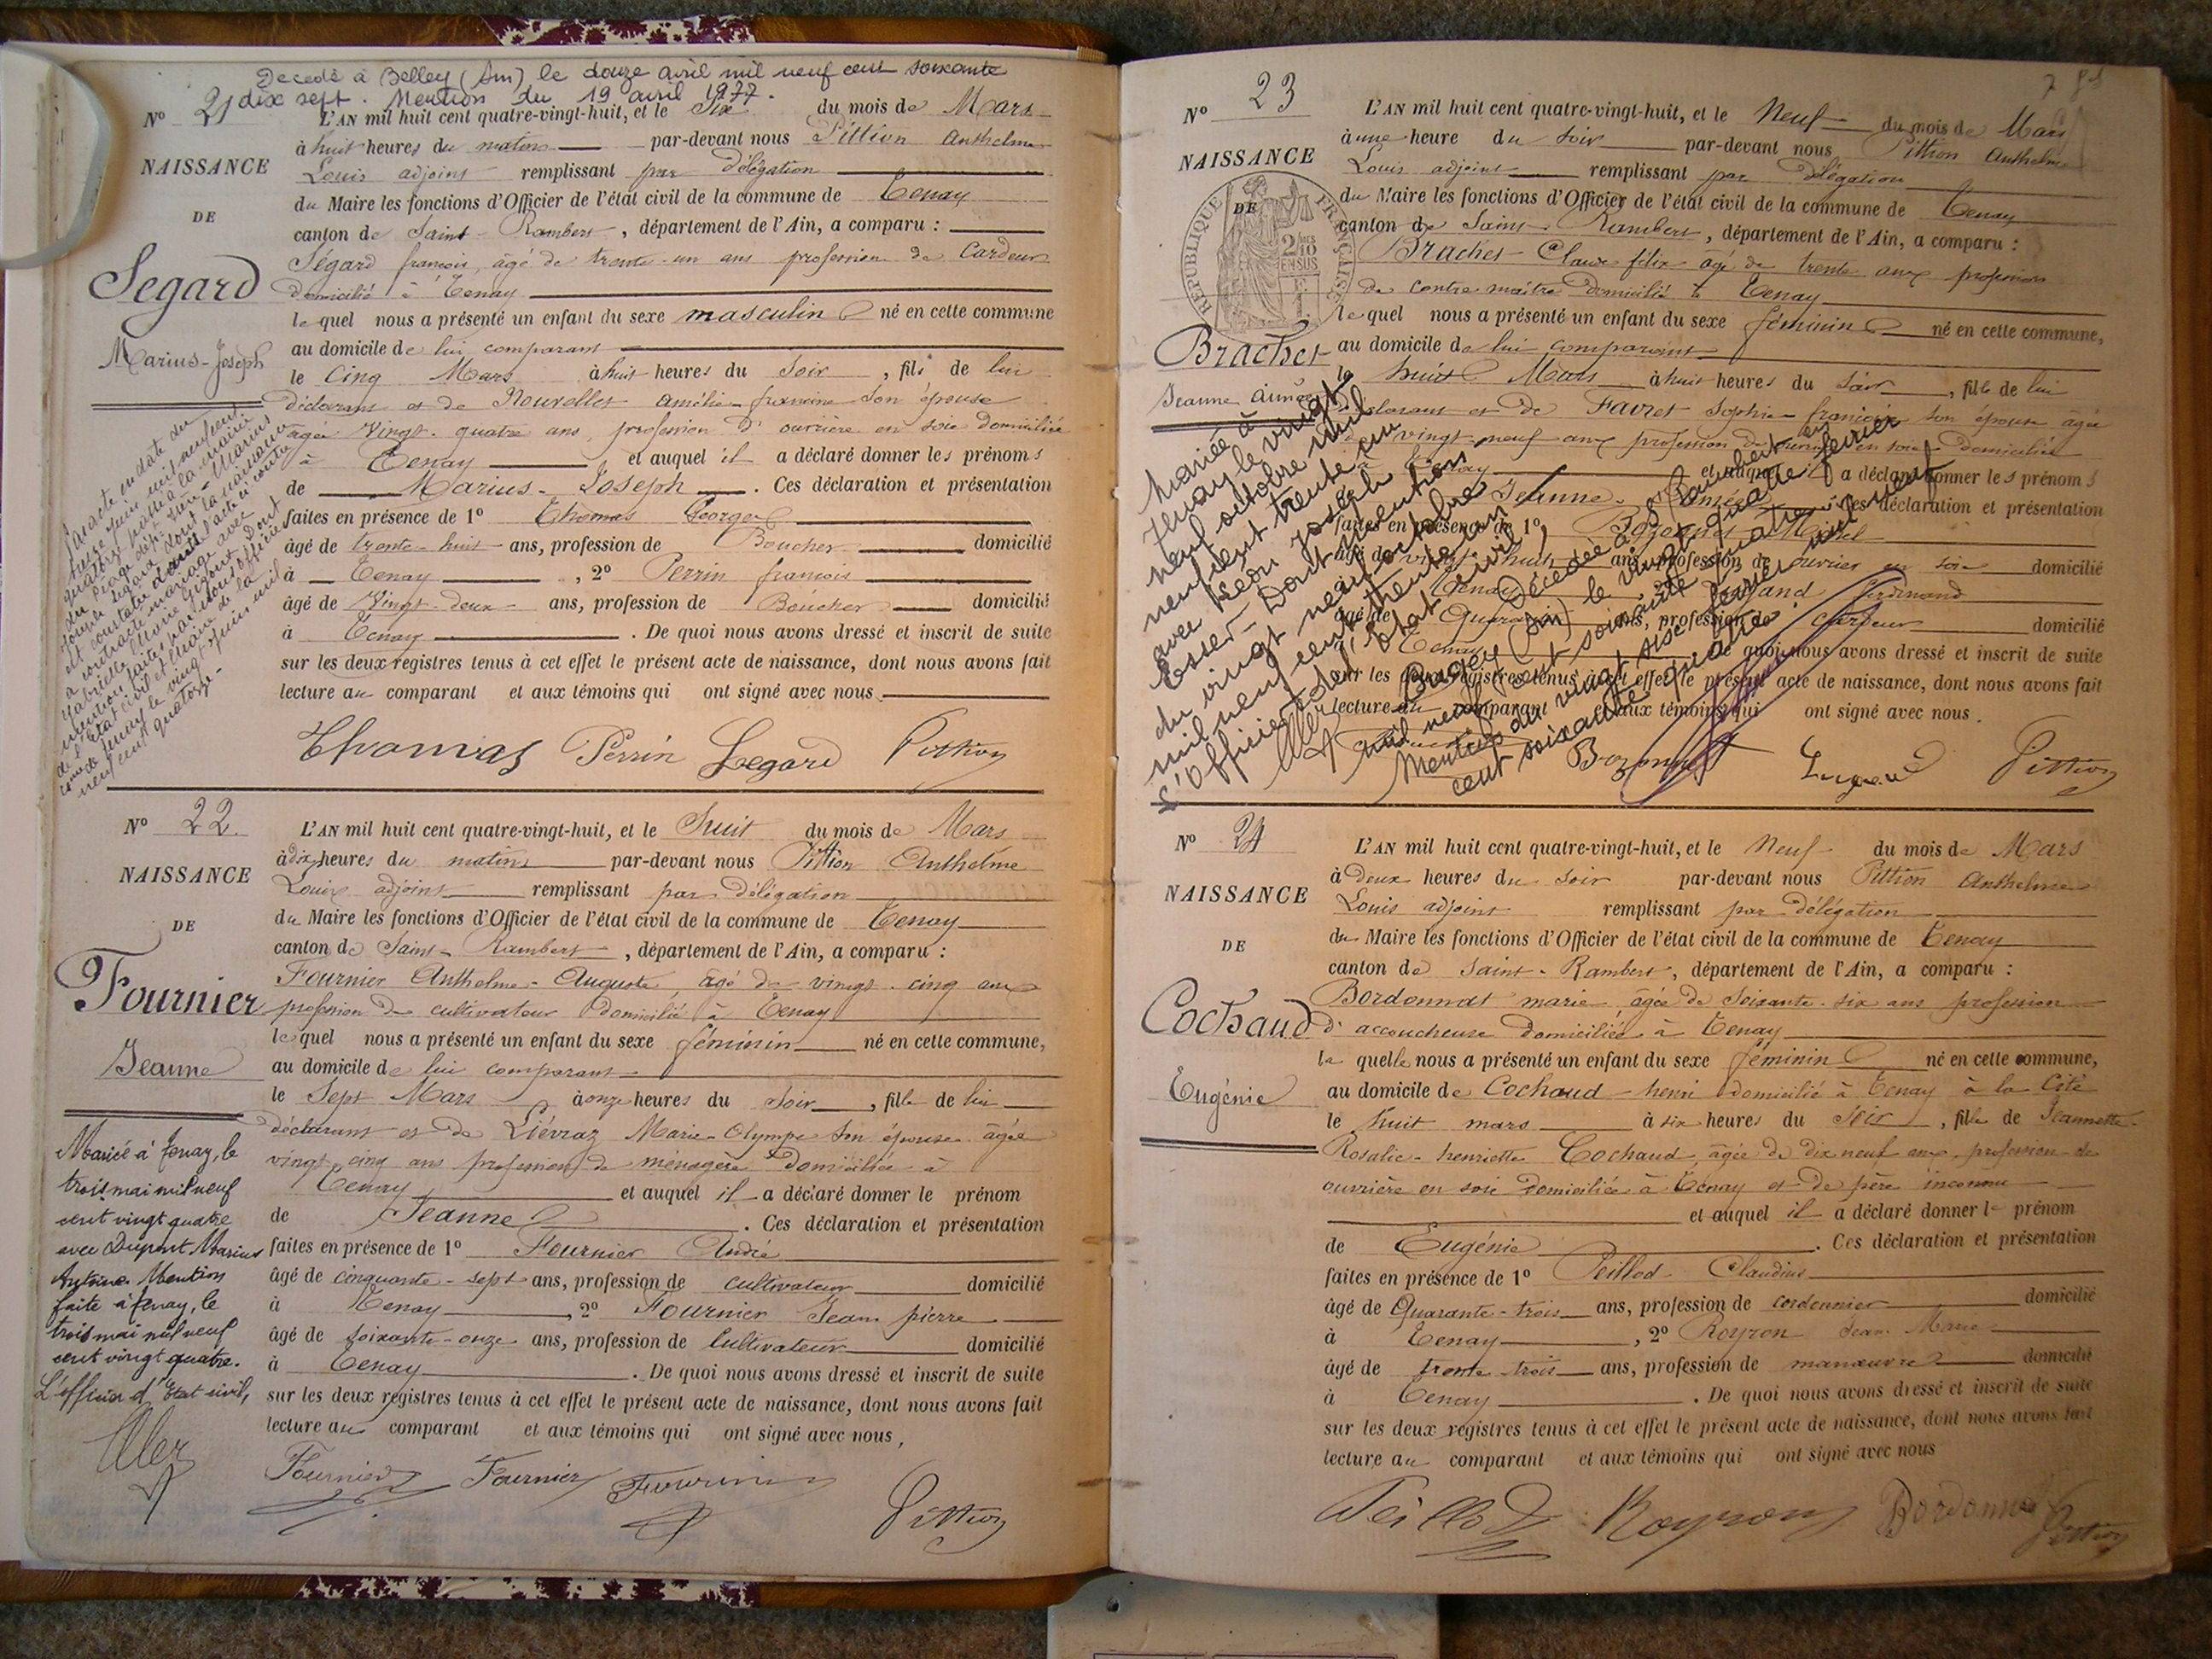 Decedé à Belley (Ain) le douze avril mil neuf cent soixante
dix sept. Mention du 19 avril 1977.
N° 21
NAISSANCE
DE
Segard
Marius-Joseph
L'AN mil huit cent quatre-vingt-huit, et le Six du mois de Mars
à huit heures du matin par-devant nous Pittion Anthelme
Louis adjoint remplissant par délégation
du Maire les fonctions d'Officier de l'état civil de la commune de Tenay
canton de Saint-Rambert, département de l'Ain, a comparu :
Ségard françois, âgé de trente-un ans profession de Cardeur
domicilié à Tenay
lequel nous a présenté un enfant du sexe masculin né en cette commune
au domicile de lui comparant
le Cinq Mars à huit heures du Soir, fils de lui
déclarant et de Nouvelles Amélie-francine Son épouse
âgée Vingt-quatre ans, profession d'ouvrière en soie domiciliée
à Tenay et auquel il a déclaré donner les prénoms
de Marius-Joseph. Ces déclaration et présentation
faites en présence de 1° Thomas George
âgé de trente-huit ans, profession de Boucher domicilié
à Tenay, 2° Perrin françois
âgé de Vingt-deux ans, profession de Boucher domicilié
à Tenay. De quoi nous avons dressé et inscrit de suite
sur les deux registres tenus à cet effet le présent acte de naissance, dont nous avons fait
lecture au comparant et aux témoins qui ont signé avec nous.
Thomas Perrin Segard Pittion
N° 22
NAISSANCE
DE
Fournier
Jeanne
L'AN mil huit cent quatre-vingt-huit, et le Huit du mois de Mars
à dix heures du matin par-devant nous Pittion Anthelme
Louis adjoint remplissant par délégation
du Maire les fonctions d'Officier de l'état civil de la commune de Tenay
canton de Saint-Rambert, département de l'Ain, a comparu :
Fournier Anthelme-Auguste, âgé de vingt-cinq ans
profession de cultivateur domicilié à Tenay
lequel nous a présenté un enfant du sexe féminin né en cette commune,
au domicile de lui comparant
le Sept Mars à onze heures du Soir, fille de lui
déclarant et de Liévraz Marie-Olympe Son épouse âgée
vingt cinq ans profession de ménagère domiciliée à
Tenay et auquel il a déclaré donner le prénom
de Jeanne. Ces déclaration et présentation
faites en présence de 1° Fournier André
âgé de cinquante-sept ans, profession de cultivateur domicilié
à Tenay, 2° Fournier Jean pierre
âgé de Soixante-onze ans, profession de Cultivateur domicilié
à Tenay. De quoi nous avons dressé et inscrit de suite
sur les deux registres tenus à cet effet le présent acte de naissance, dont nous avons fait
lecture au comparant et aux témoins qui ont signé avec nous,
Fournier Fournier Fournier Pittion
Mariée à Tenay, le
trois mai mil neuf
cent vingt quatre
avec Dupont Marius
Antoine. Mention
faite à Tenay, le
trois mai mil neuf
cent vingt quatre.
L'officier d'Etat civil,
N° 23
NAISSANCE
DE
Brachet
Jeanne Aimée
RÉPUBLIQUE FRANÇAISE
2/10 EN SUS
L'AN mil huit cent quatre-vingt-huit, et le Neuf du mois de Mars
à une heure du Soir par-devant nous Pittion Anthelme
Louis adjoint remplissant par délégation
du Maire les fonctions d'Officier de l'état civil de la commune de Tenay
canton de Saint-Rambert, département de l'Ain, a comparu :
Brachet Claude félix âgé de trente ans profession
de contre-maître domicilié à Tenay
lequel nous a présenté un enfant du sexe féminin né en cette commune,
au domicile de lui comparant
le huit Mars à huit heures du Soir, fille de lui
déclarant et de Favret Sophie-françoise son épouse âgée
de vingt-neuf ans profession de ouvrière en soie domiciliée
à Tenay et auquel il a déclaré donner les prénoms
Jeanne-Aimée. Ces déclaration et présentation
faites en présence de 1° Bozonnet Michel
âgé de vingt huit ans, profession de ouvrier en soie domicilié
Tenay, 2° Ferdinand
âgé de Quarante ans, profession de Cardeur domicilié
Tenay De quoi nous avons dressé et inscrit de suite
sur les deux registres tenus à cet effet le présent acte de naissance, dont nous avons fait
lecture au comparant et aux témoins qui ont signé avec nous.
Bozonnet Pittion
Mariée à
Tenay le vingt
neuf octobre mil
neuf cent trente un
avec Joseph
Dont mention
du vingt neuf octobre
mil neuf cent trente un
L'Officier de l'Etat civil,
Décédée à St Rambert en
Bugey (Ain) le vingt quatre février
mil neuf cent soixante quatre
Mention du vingt six février mil neuf
cent soixante quatre
N° 24
NAISSANCE
DE
Cochaud
Eugénie
L'AN mil huit cent quatre-vingt-huit, et le Neuf du mois de Mars
à Deux heures du Soir par-devant nous Pittion Anthelme
Louis adjoint remplissant par délégation
du Maire les fonctions d'Officier de l'état civil de la commune de Tenay
canton de Saint-Rambert, département de l'Ain, a comparu :
Bordonnat marie âgée de Soixante-six ans profession
d'accoucheuse domiciliée à Tenay
la quelle nous a présenté un enfant du sexe féminin né en cette commune,
au domicile de Cochaud henri domicilié à Tenay à la Cité
le huit mars à six heures du Soir, fille de Jeannette-
Rosalie-henriette Cochaud, âgée de dix neuf ans, profession de
ouvrière en soie domiciliée à Tenay et de père inconnu
et auquel il a déclaré donner le prénom
de Eugénie. Ces déclaration et présentation
faites en présence de 1° Peillod Claudius
âgé de Quarante-trois ans, profession de cordonnier domicilié
à Tenay, 2° Royron Jean Marie
âgé de trente trois ans, profession de manœuvre domicilié
à Tenay. De quoi nous avons dressé et inscrit de suite
sur les deux registres tenus à cet effet le présent acte de naissance, dont nous avons fait
lecture au comparant et aux témoins qui ont signé avec nous
Peillod Royron Bordonnat Pittion